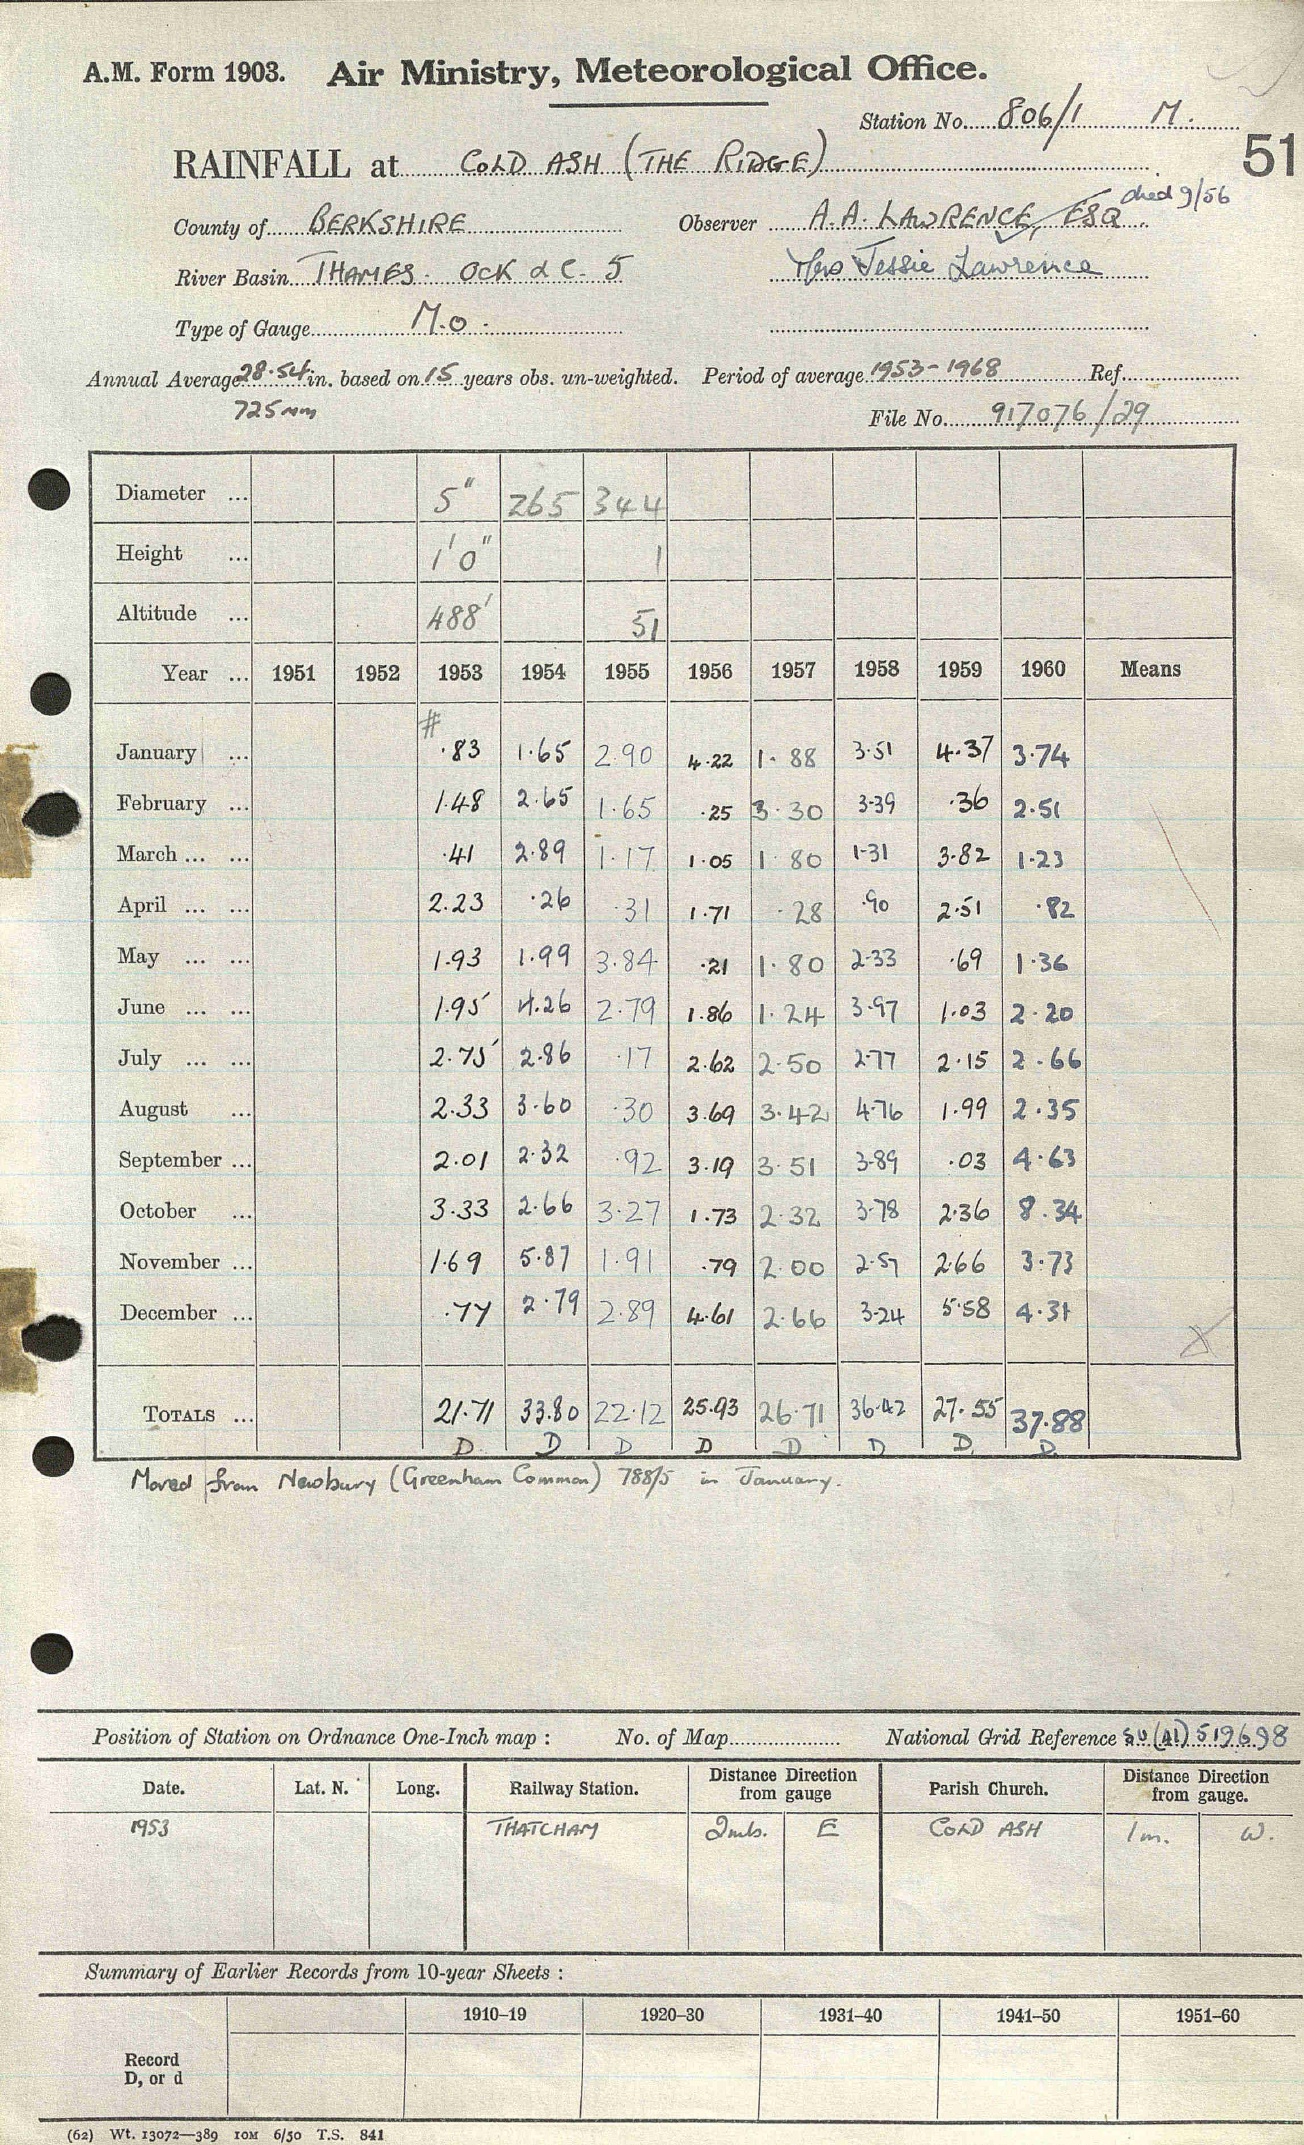 A.M. Form 1903. Air Ministry, Meteorological Office.
Station No. 806/1 M.
51
RAINFALL at COLD ASH (THE RIDGE)
died 9/56
County of BERKSHIRE Observer A.A. LAWRENCE, ESQ
River Basin THAMES. OCK &C. 5 Mrs Jessie Lawrence
Type of Gauge M.O.
Annual Average 28.54 in. based on 15 years obs. un-weighted. Period of average 1953-1968 Ref.
725mm
File No. 917076/29
Diameter ... 5" 265 344
Height ... 1'0" 1
Altitude ... 488' 51
Year ... 1951 1952 1953 1954 1955 1956 1957 1958 1959 1960 Means
#
January ... .83 1.65 2.90 4.22 1.88 3.51 4.37 3.74
February ... 1.48 2.65 1.65 .25 3.30 3.39 .36 2.51
March ... ... .41 2.89 1.17 1.05 1.80 1.31 3.82 1.23
April ... ... 2.23 .26 .31 1.71 .28 .90 2.51 .82
May ... ... 1.93 1.99 3.84 .21 1.80 2.33 .69 1.36
June ... ... 1.95 4.26 2.79 1.86 1.24 3.97 1.03 2.20
July ... ... 2.75 2.86 .17 2.62 2.50 2.77 2.15 2.66
August ... 2.33 3.60 .30 3.69 3.42 4.76 1.99 2.35
September ... 2.01 2.32 .92 3.19 3.51 3.89 .03 4.63
October ... 3.33 2.66 3.27 1.73 2.32 3.78 2.36 8.34
November ... 1.69 5.87 1.91 .79 2.00 2.57 2.66 3.73
December ... .77 2.79 2.89 4.61 2.66 3.24 5.58 4.31
TOTALS ... 21.71 33.80 22.12 25.93 26.71 36.42 27.55 37.88
D D D D D D D. D.
Moved from Newbury (Greenham Common) 788/5 in January.
Position of Station on Ordnance One-Inch map : No. of Map National Grid Reference SU(41) 519698
Date. Lat. N. Long. Railway Station. Distance Direction from gauge Parish Church. Distance Direction from gauge.
1953 THATCHAM 2mls. E COLD ASH 1m. W.
Summary of Earlier Records from 10-year Sheets :
1910–19 1920–30 1931–40 1941–50 1951–60
Record
D, or d
(62) Wt. 13072—389 10M 6/50 T.S. 841